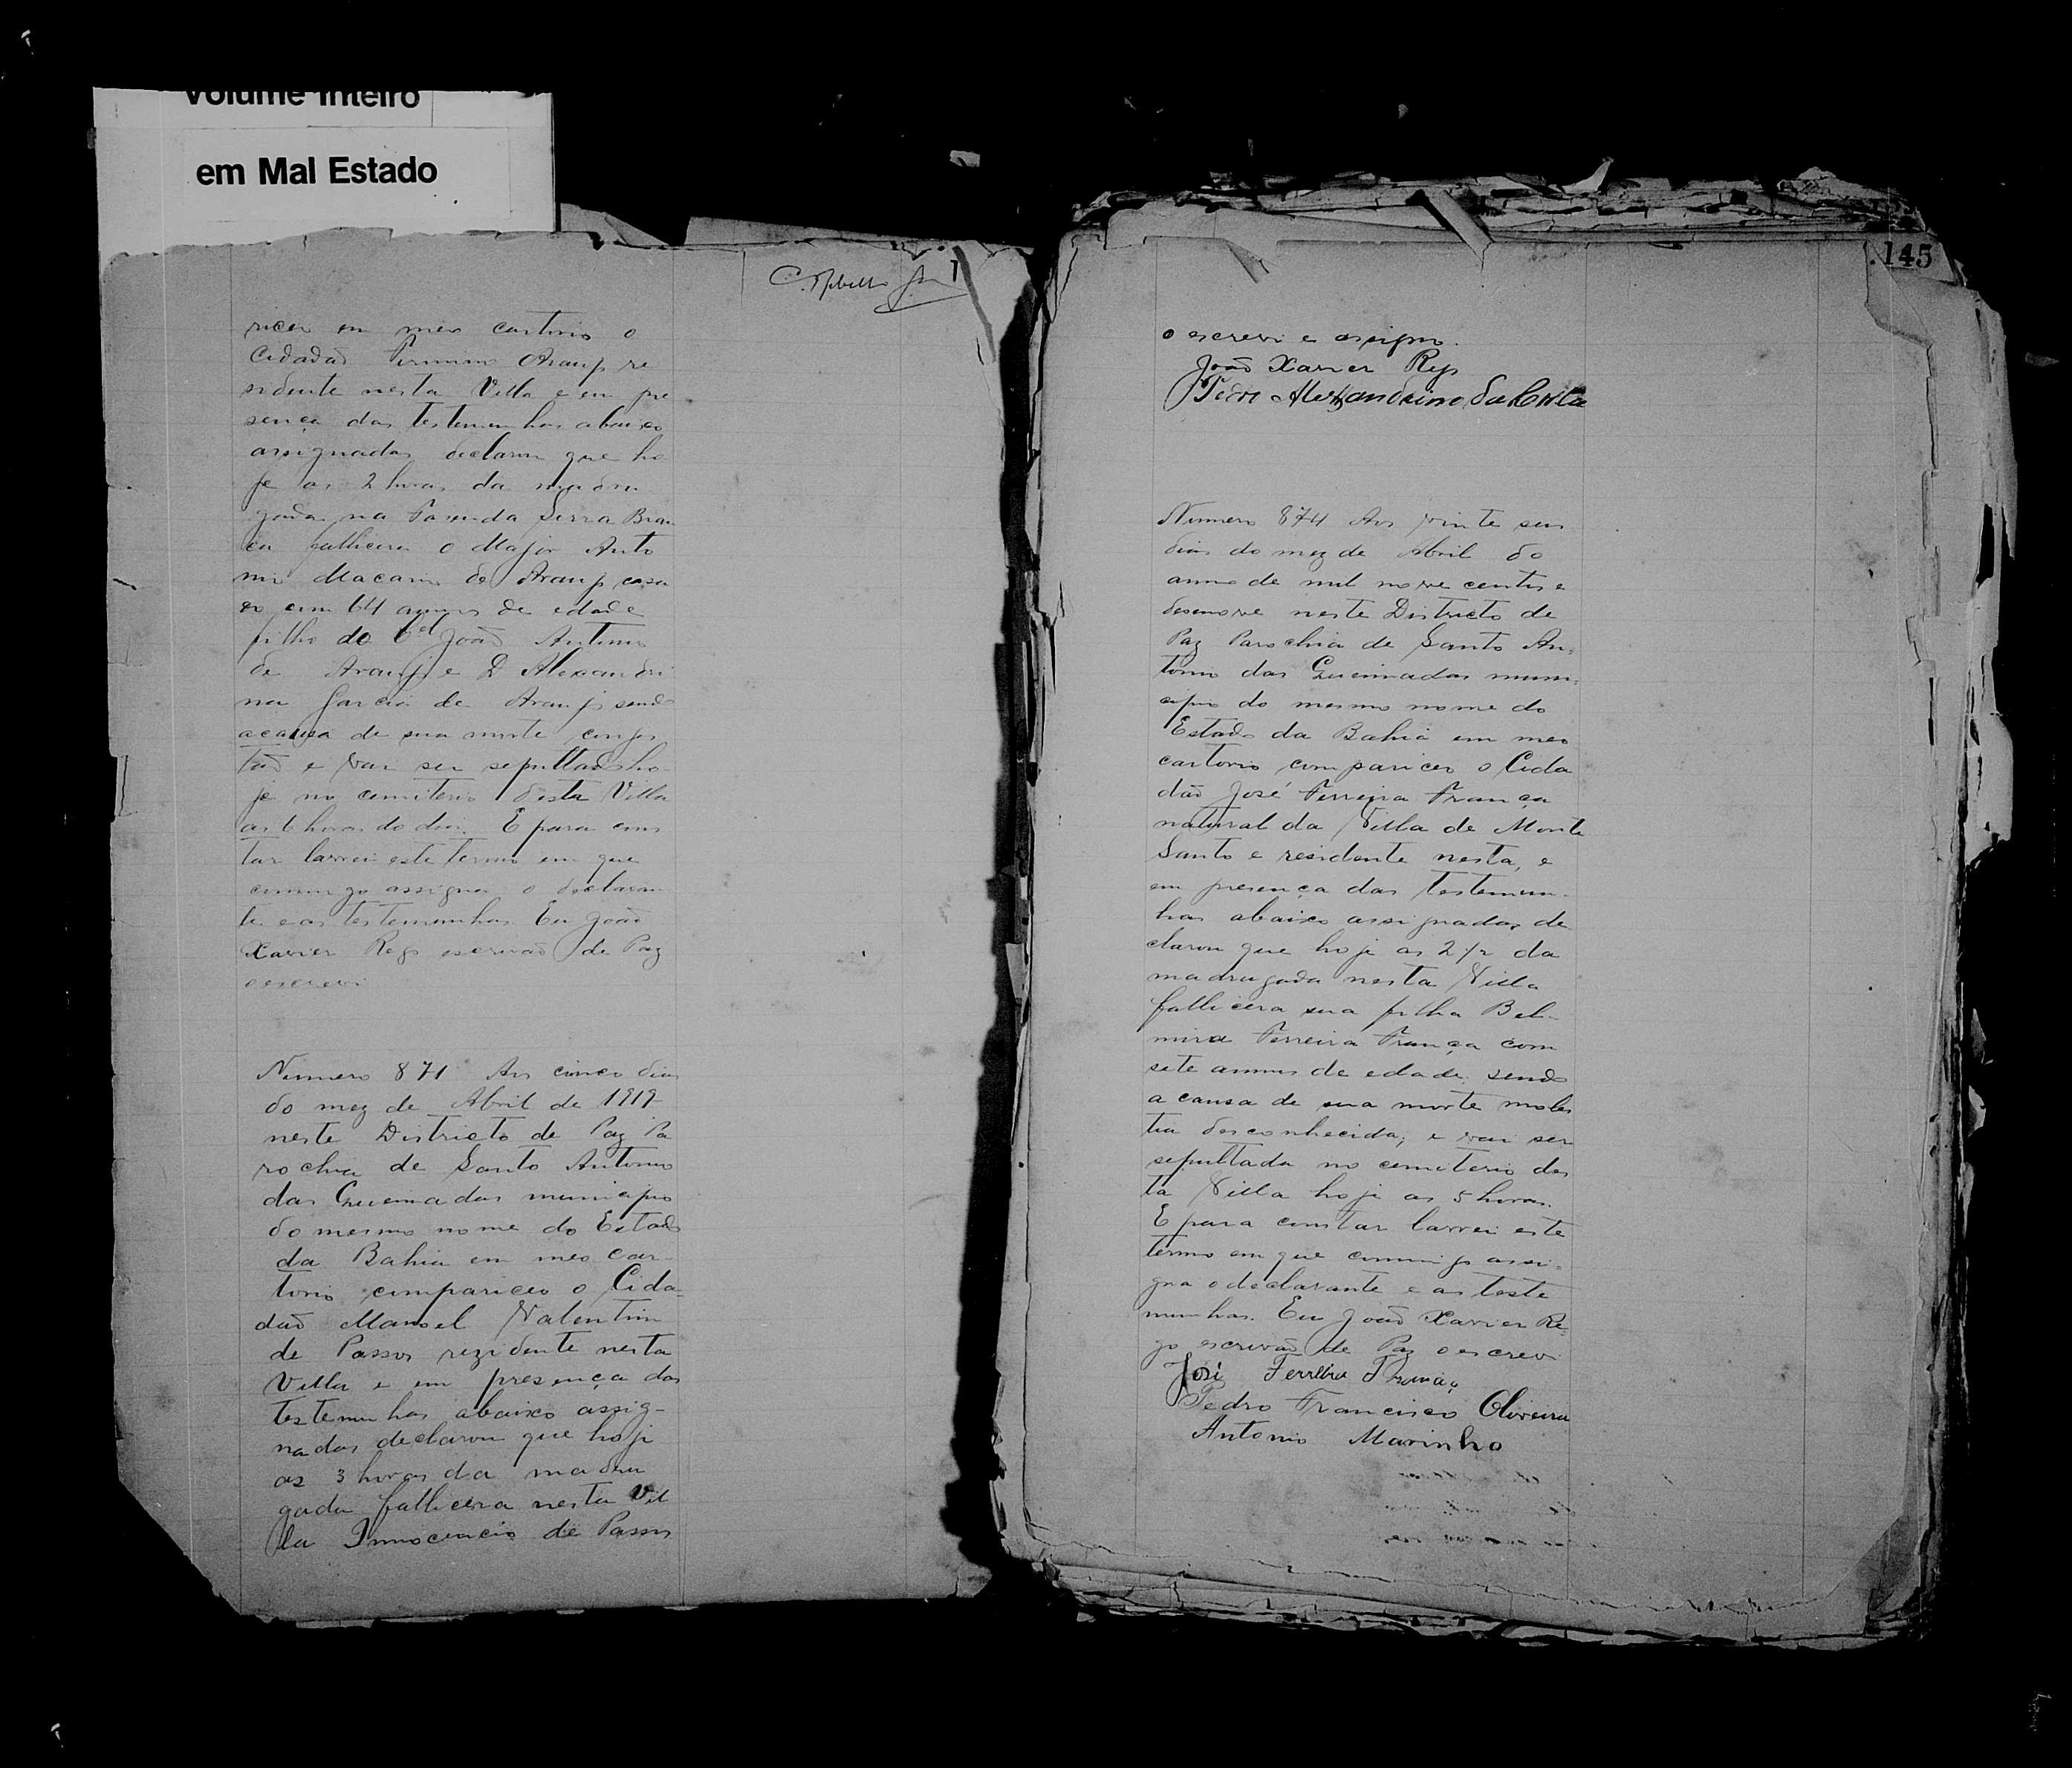 Volume Inteiro
em Mal Estado
ricer em meo cartorio o
Cidadão Firmino Araujo re
sidente nesta Villa e em pre
sença das testemunhas abaixo
assignadas declarou que ho
je as 2 horas da madru
gada na Fasenda Serra Bran
ca fallicera o Major Anto
nio Macario de Araujo casa
do com 64 annos de edade
filho do Cel João Antonio
de Araujo e D Alexandri
na Garcia de Araujo sendo
a causa de sua morte conges
tão e vai ser sepultado ho
je no cemiterio desta Villa
as 6 horas do dia. E para cons
tar lavrei este termo em que
commigo assigna o declaran
te e as testemunhas. Eu João
Xavier Rego escrivão de Paz
o escrevi
Numero 871 Aos cinco dias
do mez de Abril de 1919
neste Districto de Paz Pa
rochia de Santo Antonio
das Queimadas municipio
do mesmo nome do Estado
da Bahia em meo car
torio compariceo o Cida-
dão Manoel Valentim
de Passos rezidente nesta
Villa e em presença das
testemunhas abaixo assig-
nadas declarou que hoji
as 3 horas da madru
gada fallicera nesta Vil
la Innocencio de Passos
145
o escrevi e assigno.
João Xavier Rego
Pedro Alexandrino da Costa
Numero 874 Aos vinte seis
dias do mez de Abril do
anno de mil nove centos e
desenove neste Districto de
Paz Parochia de Santo An=
tonio das Queimadas muni=
cipio do mesmo nome do
Estado da Bahia em meo
cartorio compariceo o Cida
dão José Ferreira França
natural da Villa de Monte
Santo e residente nesta, e
em presença das testemun-
has abaixo assignadas de
clarou que hoje as 2 1/2 da
madrugada nesta Villa
fallicera sua filha Bel-
mira Ferreira França com
sete annos de edade; sendo
a causa de sua morte moles
tia desconhecida; e vai ser
sepultada no cemiterio des
ta Villa hoje as 5 horas.
E para constar lavrei este
termo em que commigo assi=
gna o declarante e as teste
munhas. Eu João Xavier Re=
go escrivão de Paz o escrevi
José Ferreira França
Pedro Francisco Oliveira
Antonio Marinho